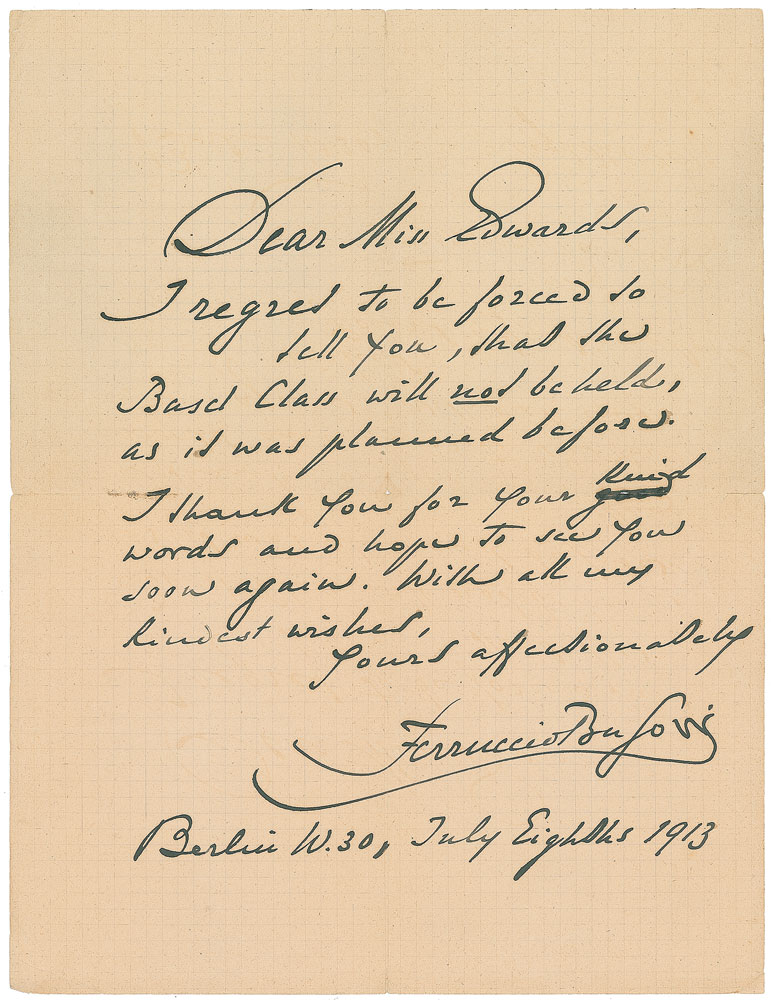 Dear Miss Edwards,
I regret to be forced to
tell You, that the
Basel Class will not be held,
as it was planned before.
I thank You for Your Kind
words and hope to see You
soon again. With all my
kindest wishes,
Yours affectionately
Ferruccio Busoni
Berlin W.30, July Eighths 1913